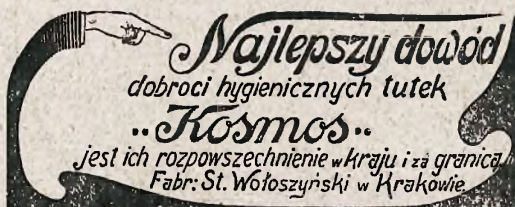 Najlepszy dowód
dobroci hygienicznych tutek
„Kosmos„
jest ich rozpowszechnienie w kraju i za granicą
Fabr: St. Wołoszyński w Krakowie.